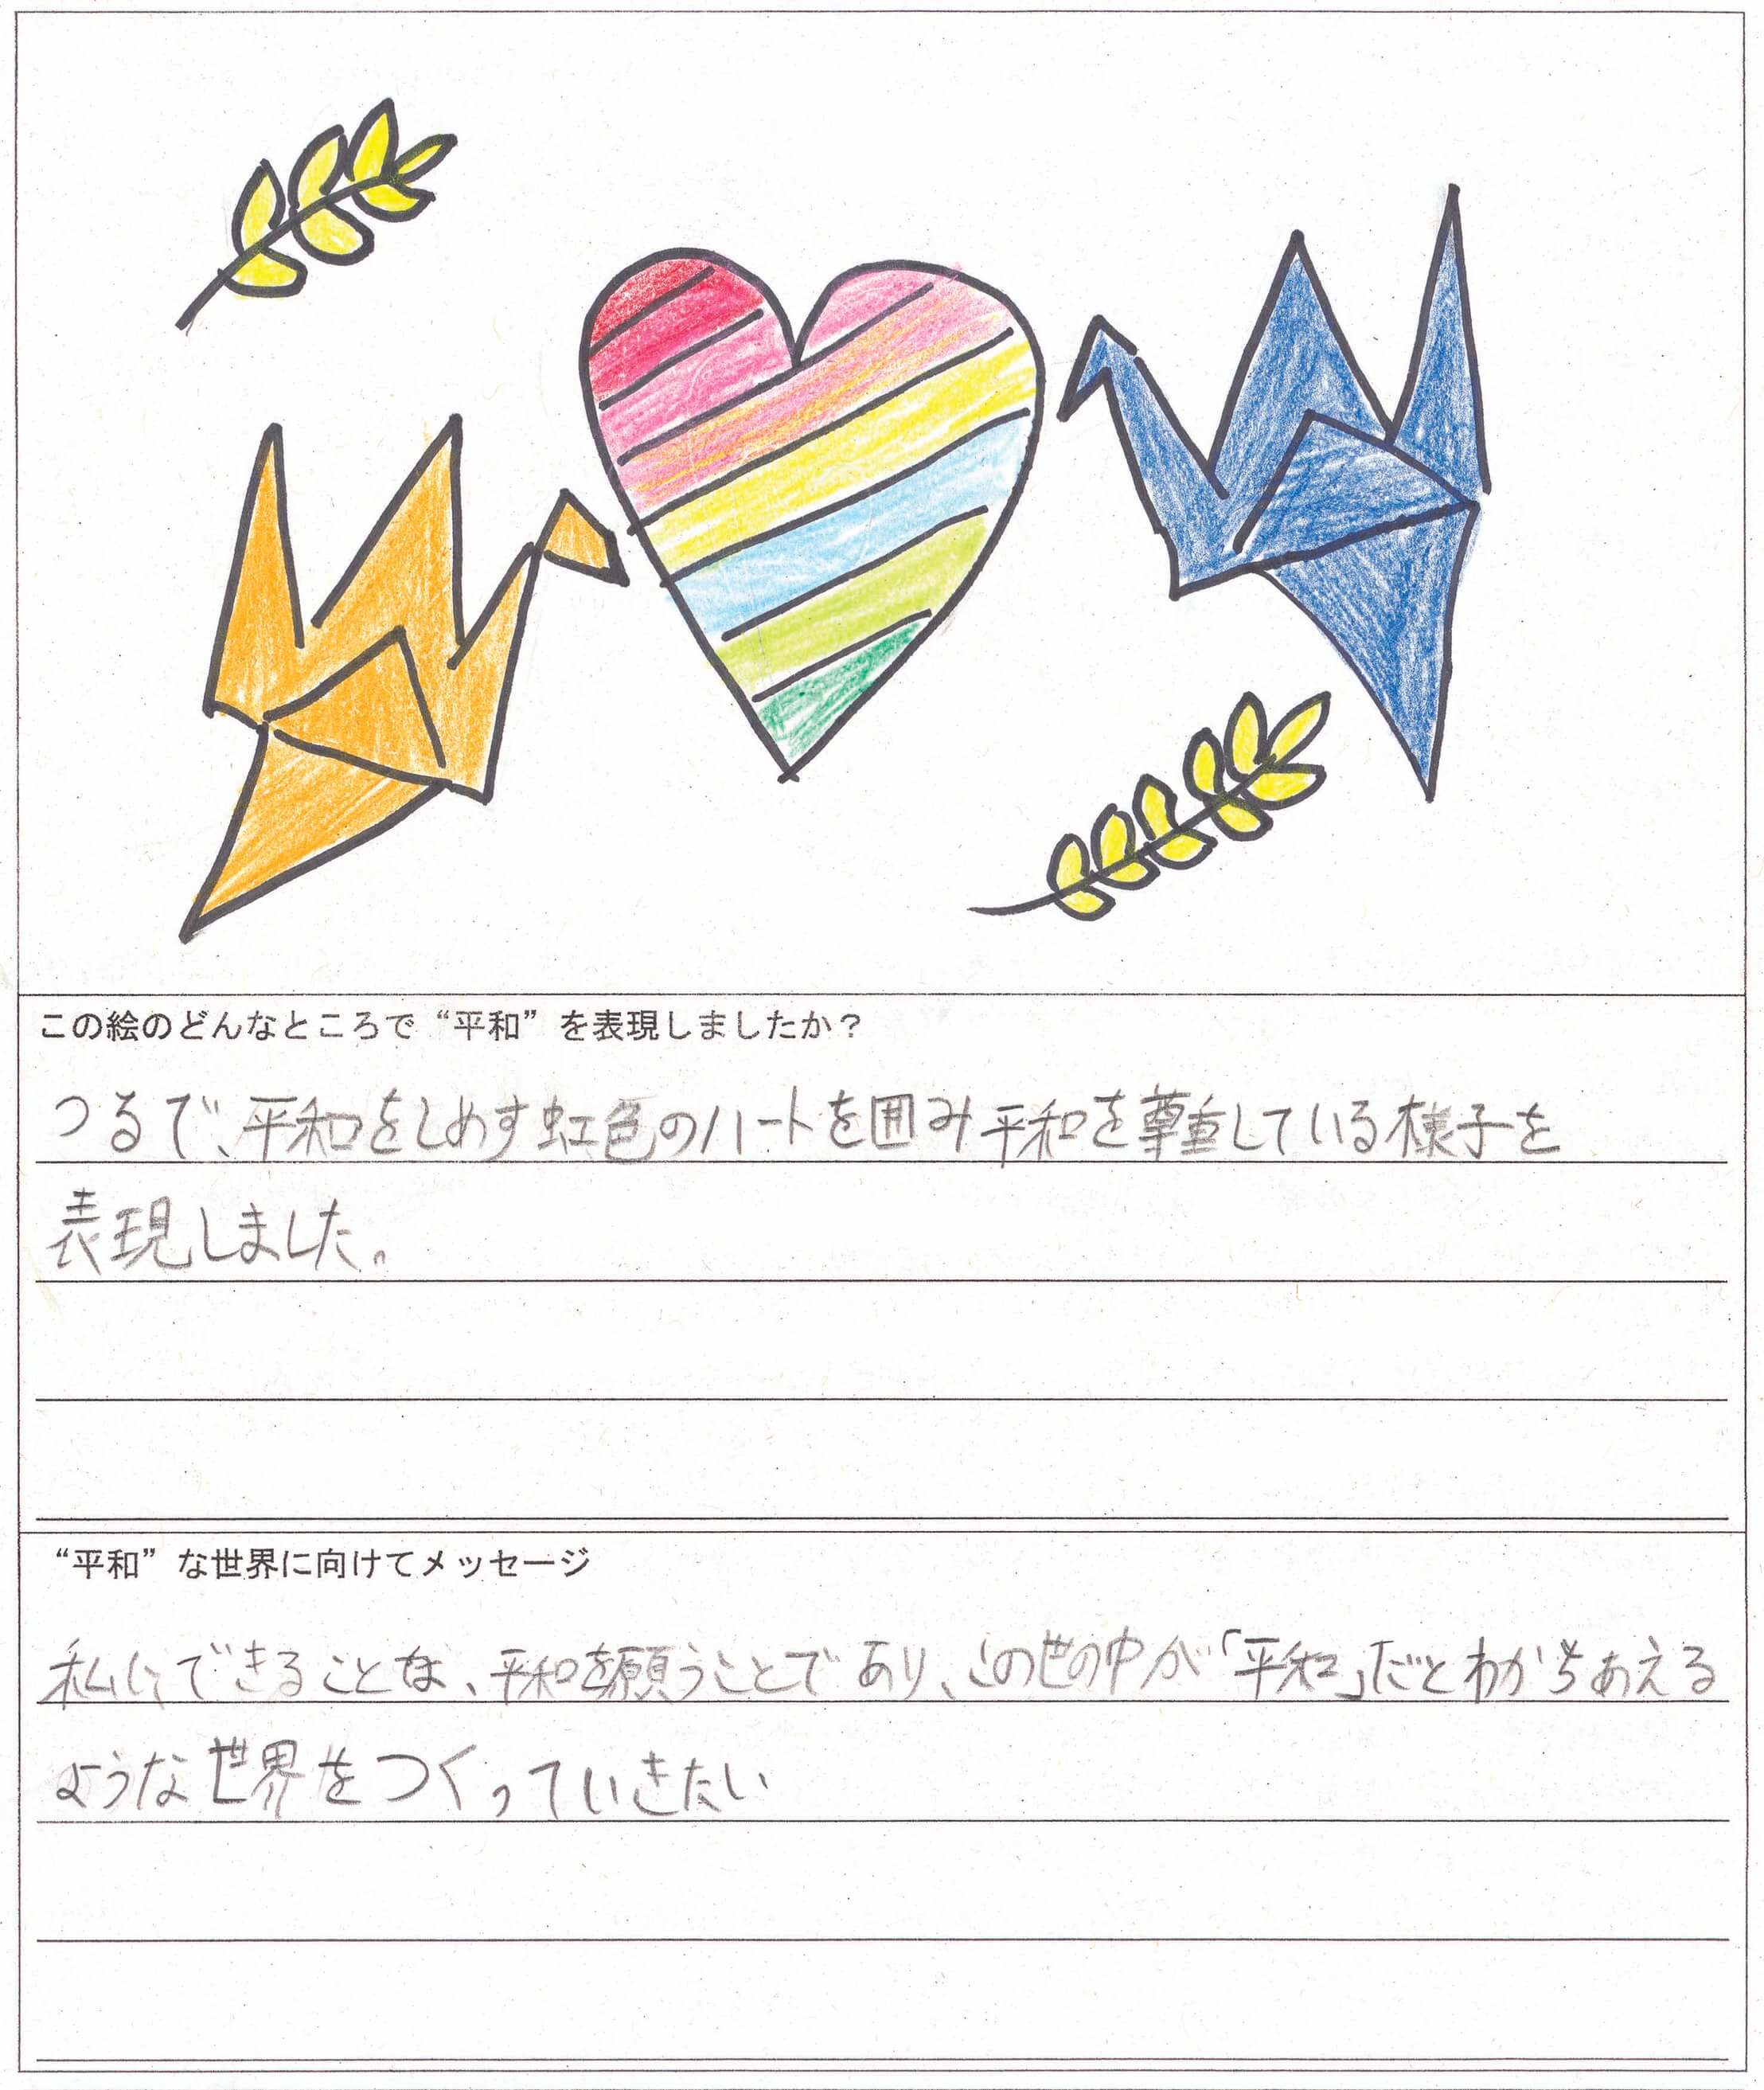 この絵のどんなところで“平和”を表現しましたか？
つるで、平和をしめす虹色のハートを囲み平和を尊重している様子を
表現しました。
“平和”な世界に向けてメッセージ
私にできることは、平和を願うことであり、この世の中が「平和」だとわかちあえる
ような世界をつくっていきたい